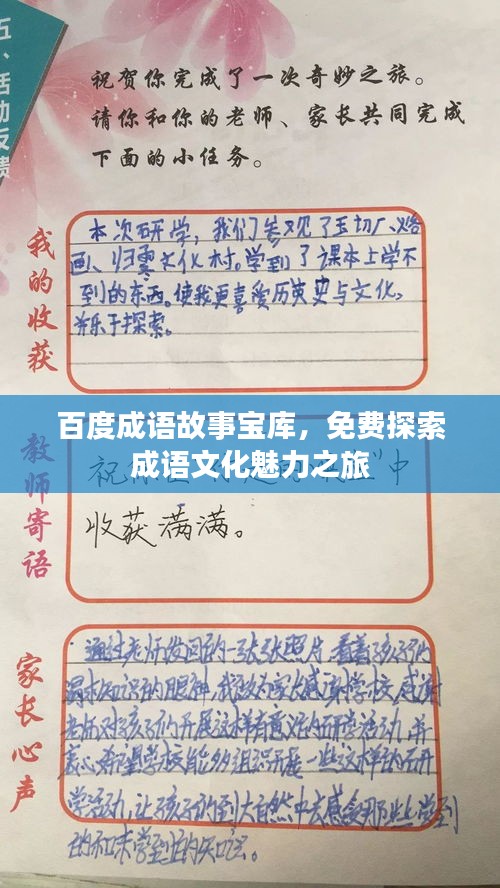 五、活动反馈
祝贺你完成了一次奇妙之旅。
请你和你的老师、家长共同完成
下面的小任务。
我的收获
本次研学，我们参观了玉切厂、烙
画、归零文化村。学到了课本上学不
到的东西。使我更喜爱历史与文化，
并乐于探索。
百度成语故事宝库，免费探索
成语文化魅力之旅
教师寄语
祝你 中
收获满满。
家长心声
通过老师发回的一张张照片，看着孩子们
渴求知识的眼神，我致为家长感谢学校，感谢
老师对孩子们开展这样有意义的研学活动，并
衷心希望学校能多组织开展一些这样的研
学活动，让孩子们到大自然中去感受那些学到
的和未学到的知识。